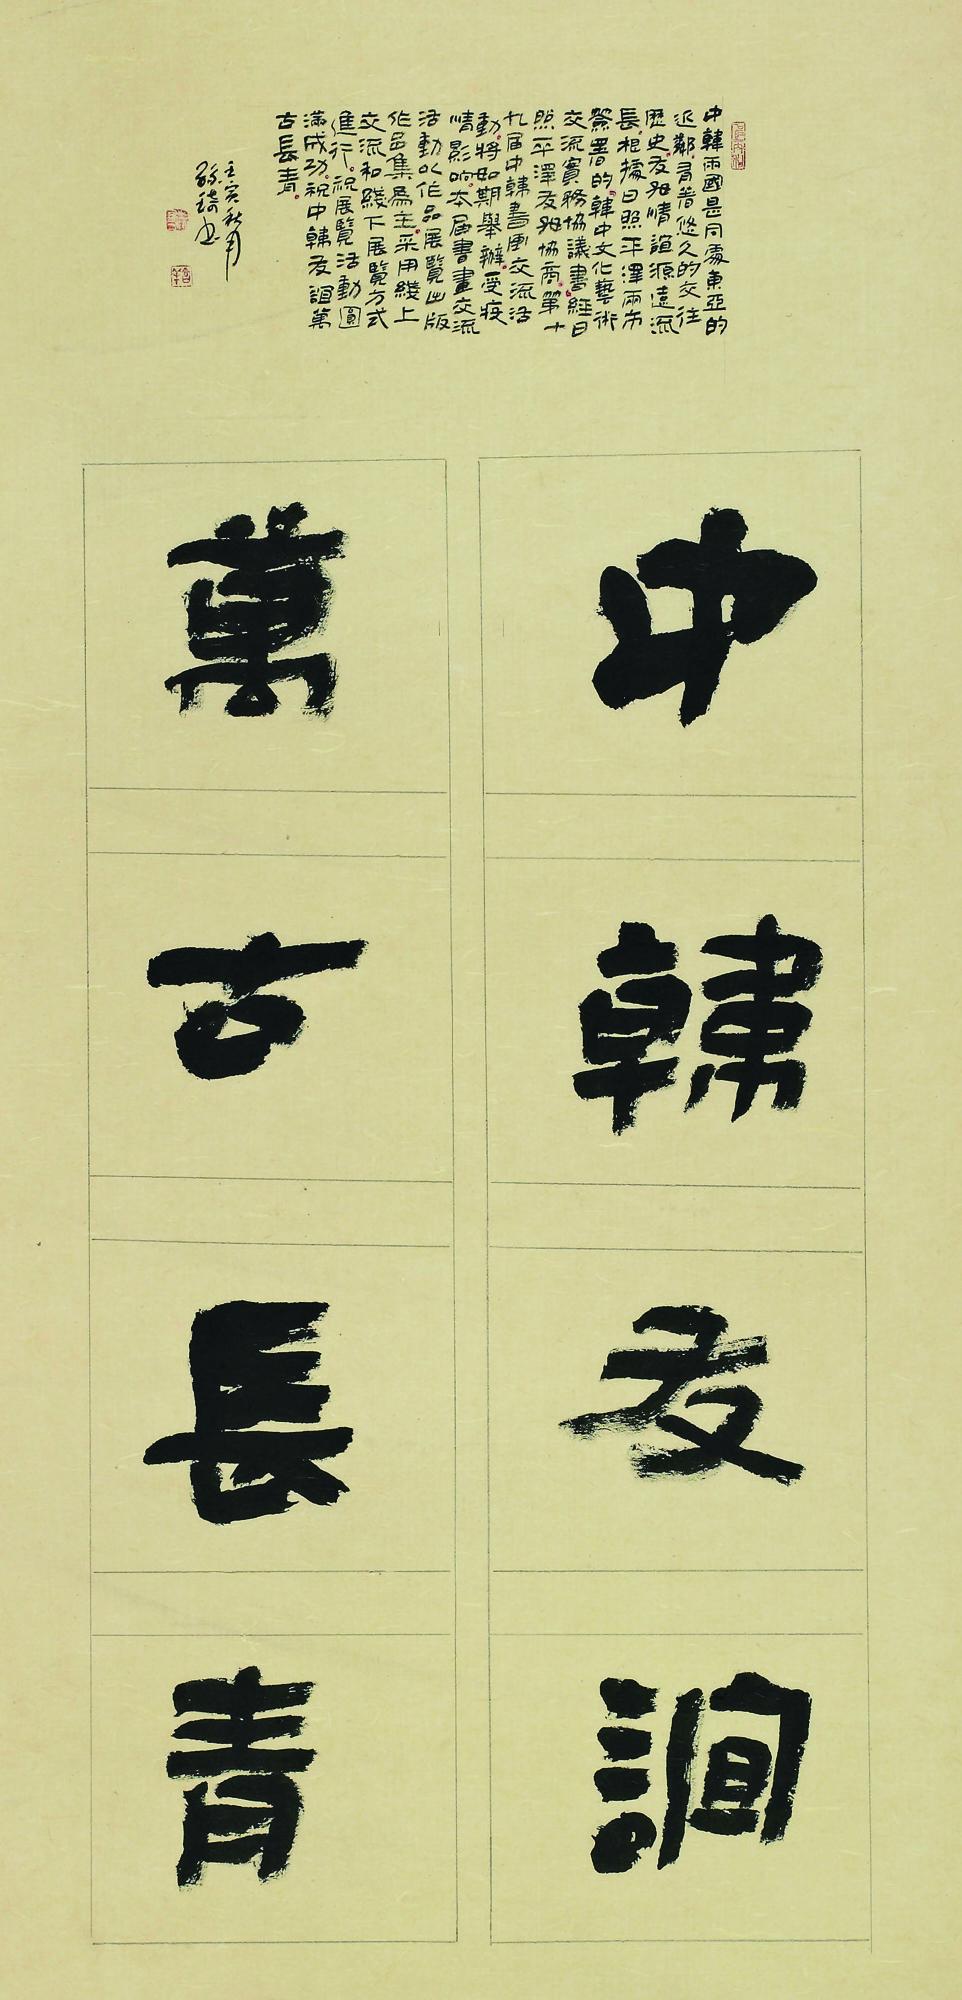 中韓兩國是同處東亞的
近鄰有着悠久的交往
歷史友好情誼源遠流
長根據日照平澤兩市
簽署的韓中文化藝術
交流實務協議書經日
照平澤友好協商第十
九届中韓書画交流活
動將如期舉辦受疫
情影响本届書畫交流
活動以作品展覽出版
作品集為主采用綫上
交流和綫下展覽方式
進行祝展覽活動圓
滿成功祝中韓友誼萬
古長青
壬寅秋月
中韓友誼
萬古長青